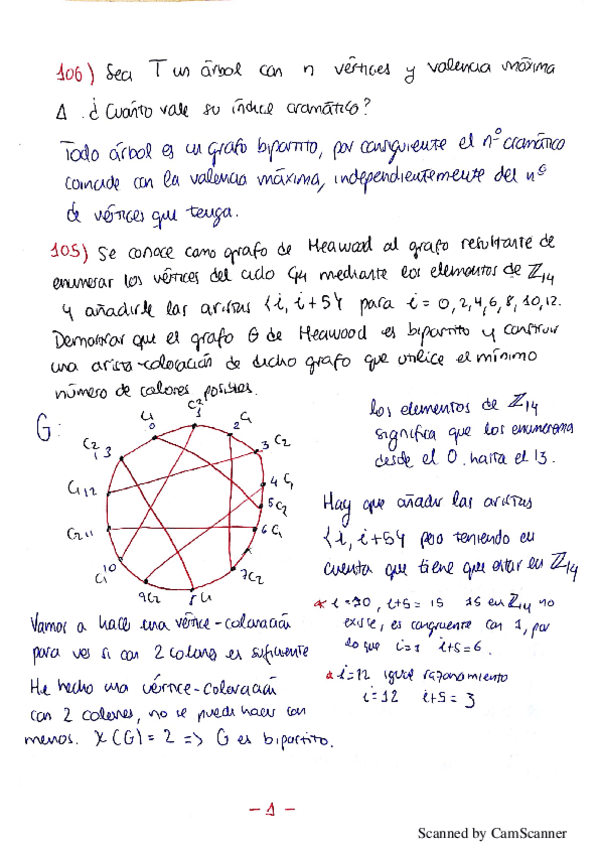 106) Sea T un árbol con n vértices y valencia máxima
Δ. ¿Cuánto vale su índice cromático?
Todo árbol es un grafo bipartito, por consiguiente el nº cromático
coincide con la valencia máxima, independientemente del nº
de vértices que tenga.
105) Se conoce como grafo de Heawood al grafo resultante de
enumerar los vértices del ciclo C14 mediante los elementos de ℤ14
y añadirle las aristas {i, i+5} para i = 0, 2, 4, 6, 8, 10, 12.
Demostrar que el grafo G de Heawood es bipartito y construir
una arista-coloración de dicho grafo que utilice el mínimo
número de colores posibles.
G:
C1 0
C2 1
2 C1
3 C2
4 C1
5 C2
6 C1
7 C2
8 C1
9 C2
10 C1
C2 11
C1 12
C2 13
los elementos de ℤ14
significa que los enumeraría
desde el 0 hasta el 13.
Hay que añadir las aristas
{i, i+5} pero teniendo en
cuenta que tiene que estar en ℤ14
* i=10, i+5 = 15 15 en ℤ14 no
existe, es congruente con 1, por
lo que i=1 i+5=6.
* i=12 igual razonamiento
i=12 i+5 = 3
Vamos a hace una vértice-coloración
para ver si con 2 colores es suficiente
He hecho una vértice-coloración
con 2 colores, no se puede hacer con
menos. X(G) = 2 => G es bipartito.
- 1 -
Scanned by CamScanner